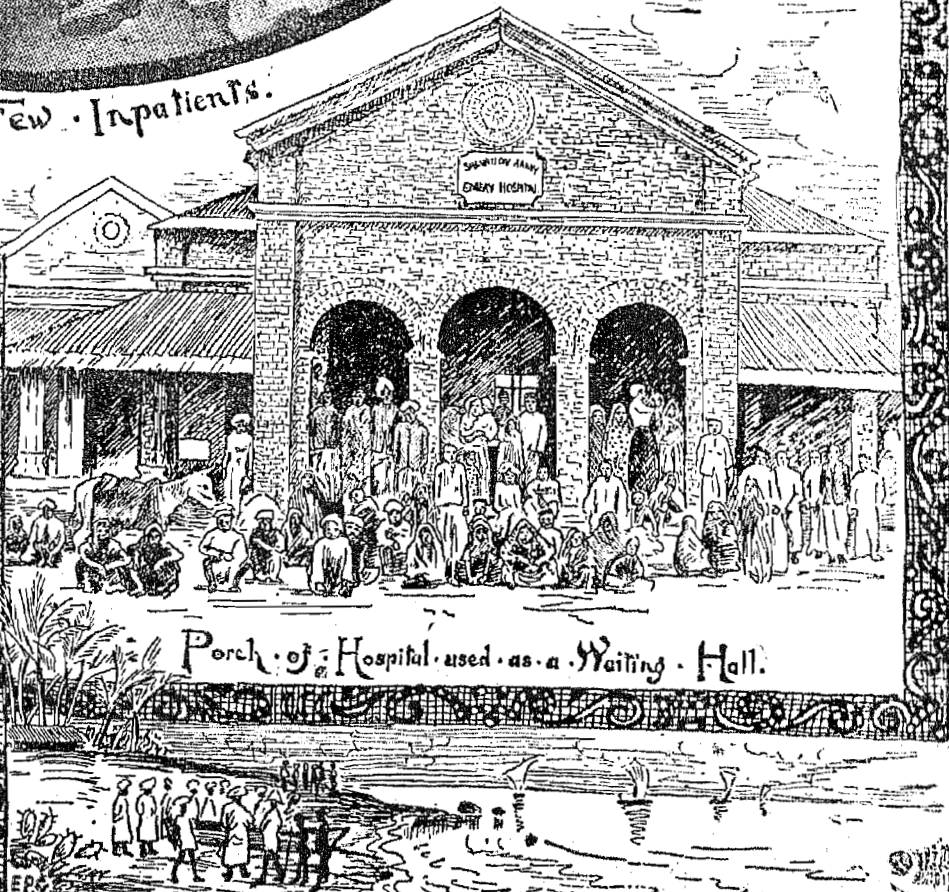 Few · Inpatients.
SALVATION ARMY
EMERY HOSPITAL
Porch · of a Hospital · used · as · a · Waiting · Hall.